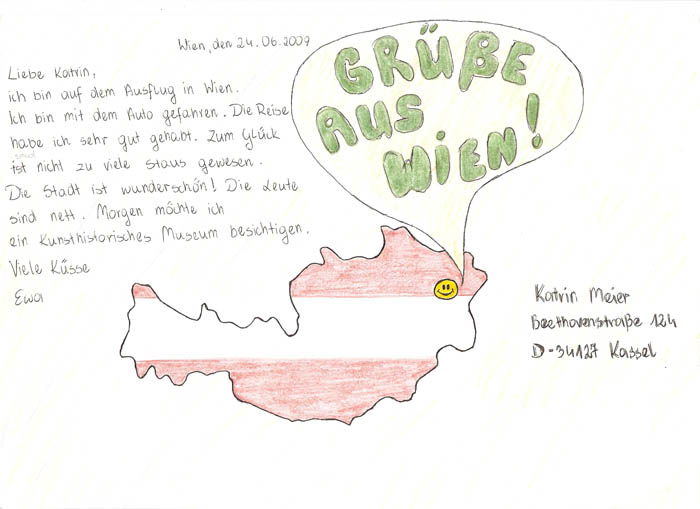 Wien, den 24.06.2009
Liebe Katrin,
ich bin auf dem Ausflug in Wien.
Ich bin mit dem Auto gefahren. Die Reise
habe ich sehr gut gehabt. Zum Glück
sind
ist nicht zu viele Staus gewesen.
Die Stadt ist wunderschön! Die Leute
sind nett. Morgen möchte ich
ein Kunsthistorisches Museum besichtigen.
Viele Küsse
Ewa
GRÜßE
AUS
WIEN!
Katrin Meier
Beethovenstraße 124
D-34127 Kassel